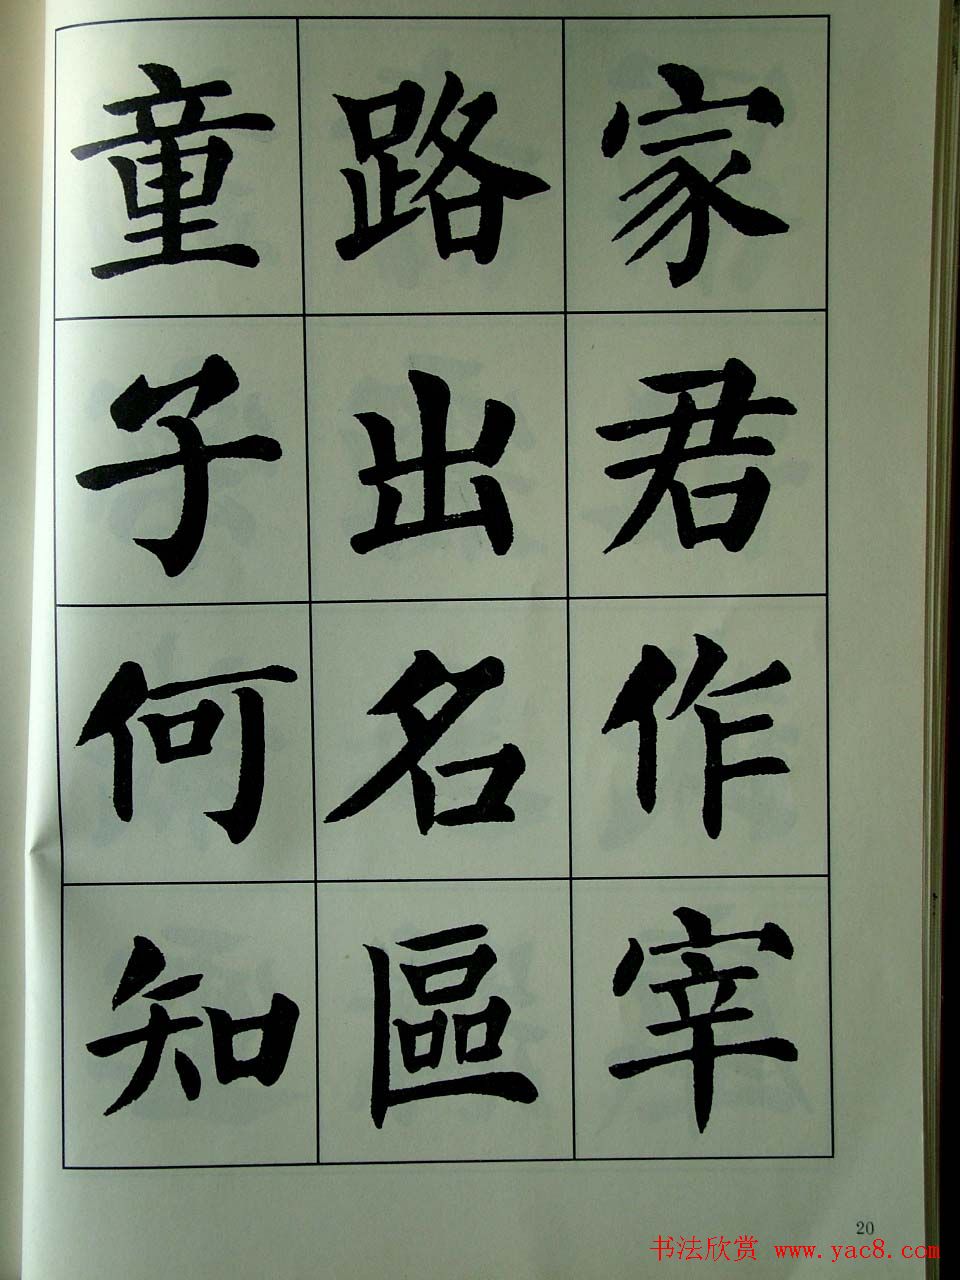 家君作宰
路出名區
童子何知
20
书法欣赏 www.yac8.com